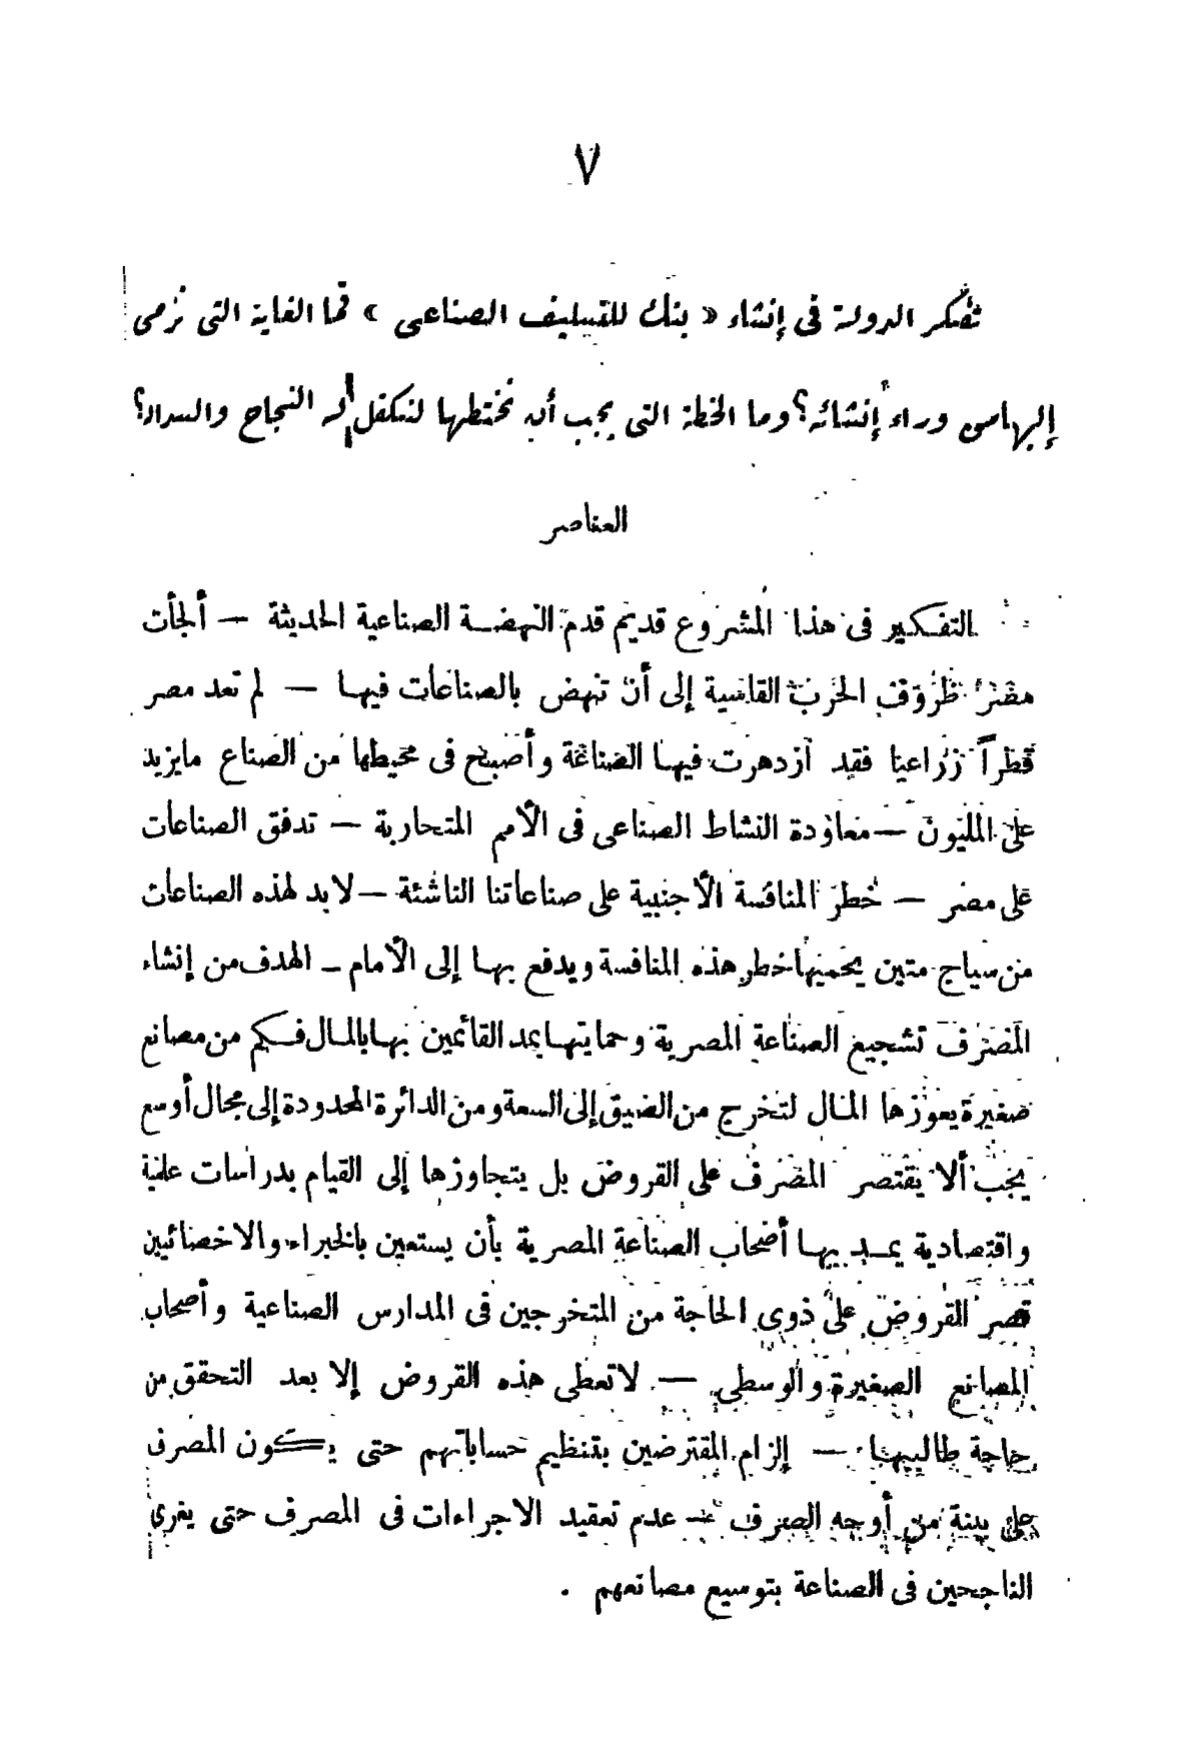 ٧
تفكر الدولة فى إنشاء « بنك للتسليف الصناعى » فما الغاية التى ترمى
إليها من وراء إنشائه؟ وما الخطة التى يجب أن تختطها لتكفل له النجاح والسداد؟
العناصر
التفكير فى هذا المشروع قديم قدم النهضة الصناعية الحديثة — ألجأت
مصر ظروف الحرب القاسية إلى أن تنهض بالصناعات فيها — لم تعد مصر
قطراً زراعيا فقد ازدهرت فيها الصناعة وأصبح فى محيطها من الصناع مايزيد
على المليون — معاودة النشاط الصناعى فى الأمم المتحاربة — تدفق الصناعات
على مصر — خطر المنافسة الأجنبية على صناعاتنا الناشئة — لابد لهذه الصناعات
من سياج متين يحميها خطر هذه المنافسة ويدفع بها إلى الأمام — الهدف من إنشاء
المصرف تشجيع الصناعة المصرية وحمايتها بمد القائمين بها بالمال فكم من مصانع
صغيرة يعوزها المال لتخرج من الضيق إلى السعة ومن الدائرة المحدودة إلى مجال أوسع
يجب ألا يقتصر المصرف على القروض بل يتجاوزها إلى القيام بدراسات علمية
واقتصادية يمد بها أصحاب الصناعة المصرية بأن يستعين بالخبراء والاخصائيين
قصر القروض على ذوى الحاجة من المتخرجين فى المدارس الصناعية وأصحاب
المصانع الصغيرة والوسطى — لاتعطى هذه القروض إلا بعد التحقق من
حاجة طالبيها — إلزام المقترضين بتنظيم حساباتهم حتى يكون المصرف
على بينة من أوجه الصرف — عدم تعقيد الاجراءات فى المصرف حتى يغرى
الناجحين فى الصناعة بتوسيع مصانعهم .